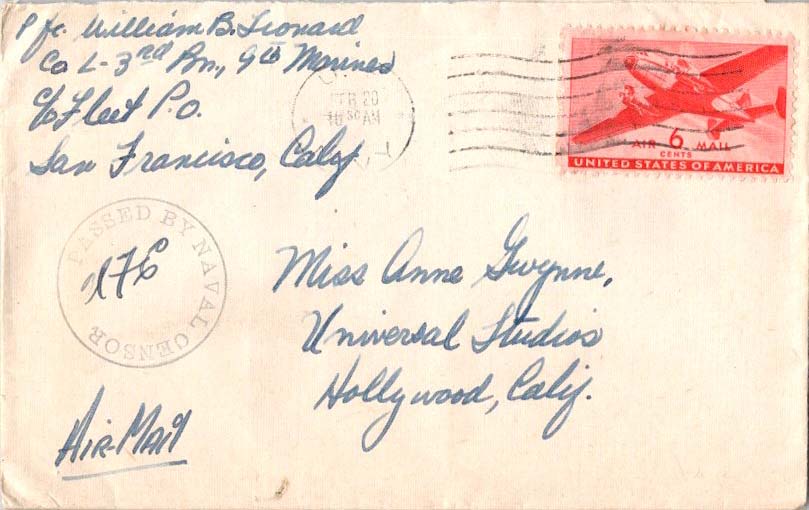 Pfc. William B. Leonard
Co L-3rd Bn., 9th Marines
c/o Fleet P.O.
San Francisco, Calif
U.S.
FEB 20
10 30 AM
AIR 6 MAIL
CENTS
UNITED STATES OF AMERICA
PASSED BY NAVAL CENSOR
Miss Anne Gwynne,
Universal Studios
Hollywood, Calif.
AIR-MAIL